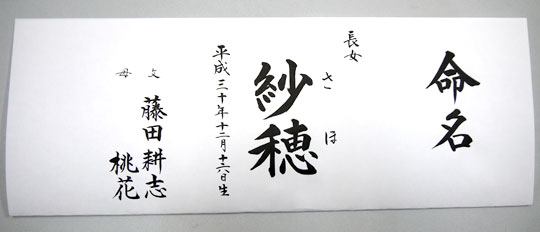 命名
長女
紗穂
さほ
平成三十年十二月十六日生
父 藤田耕志
母 桃花